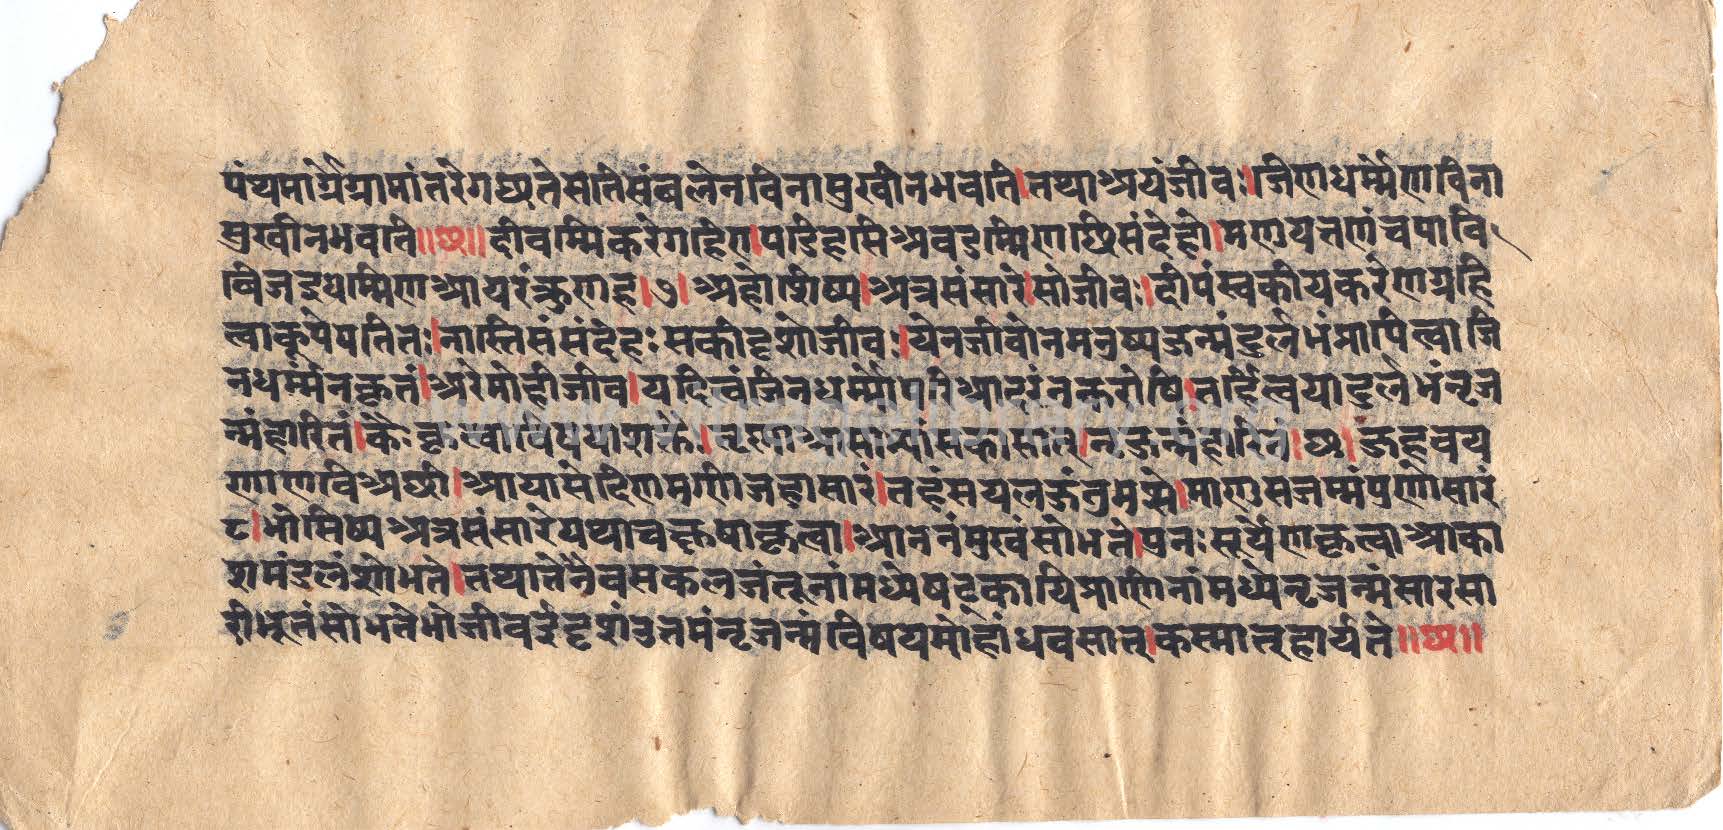 पंथमार्गेग्रामांतरेगछतेसतिसंवलेनविनासुखीनभवति।तथाश्रयंजीवः।जिणधर्म्मेणविना
सुखीनभवति॥छ॥दीवम्मिकरेगहिए।पडिहसिअवडम्मिणछिसंदेहो।मणुयत्तणंचपावि
विजइधम्मिणआयरंकुणह।७।अहोशिष्य।अत्रसंसारे।सोजीवः।दीपंस्वकीयकरेणग्रहि
त्वाकूपेपतितः।नास्तिसंसंदेहःसकीदृशोजीवः।येनजीवोनमनुष्यजन्मंदुर्लभंप्रापित्वाजि
नधर्म्मेनकृतं।अरेमोहीजीव।यदित्वंजिनधर्म्मोपरीआदरंनकरोषि।तर्हित्वयादुर्लभंनृज
न्मंहारितं।कैःकृत्वाविषयाशक्तैः।तृष्णा नृजन्मंहारितं।छ।जहवय
णाणविअछी।आयासेदिणमणीजहासारं।तहंसयलजंतुमझे।माणुसजम्मंपुणोसारं
८।भोसिष्यअत्रसंसारेयथाचक्षुषाकृत्वा।आननंमुखंसोभते।पुनःसूर्येणकृत्वाआका
शमंडलंशोभते।तथातेनैवसकलजंतूनांमध्येषट्कायिप्राणिनांमध्येनृजन्मंसारसा
रीभूतंसोभतेभोजीवईदृशंउतमंनृजन्मंविषयमोहांधवसात्।कस्मात्हार्यते॥छ॥
www.vitragelibrary.org